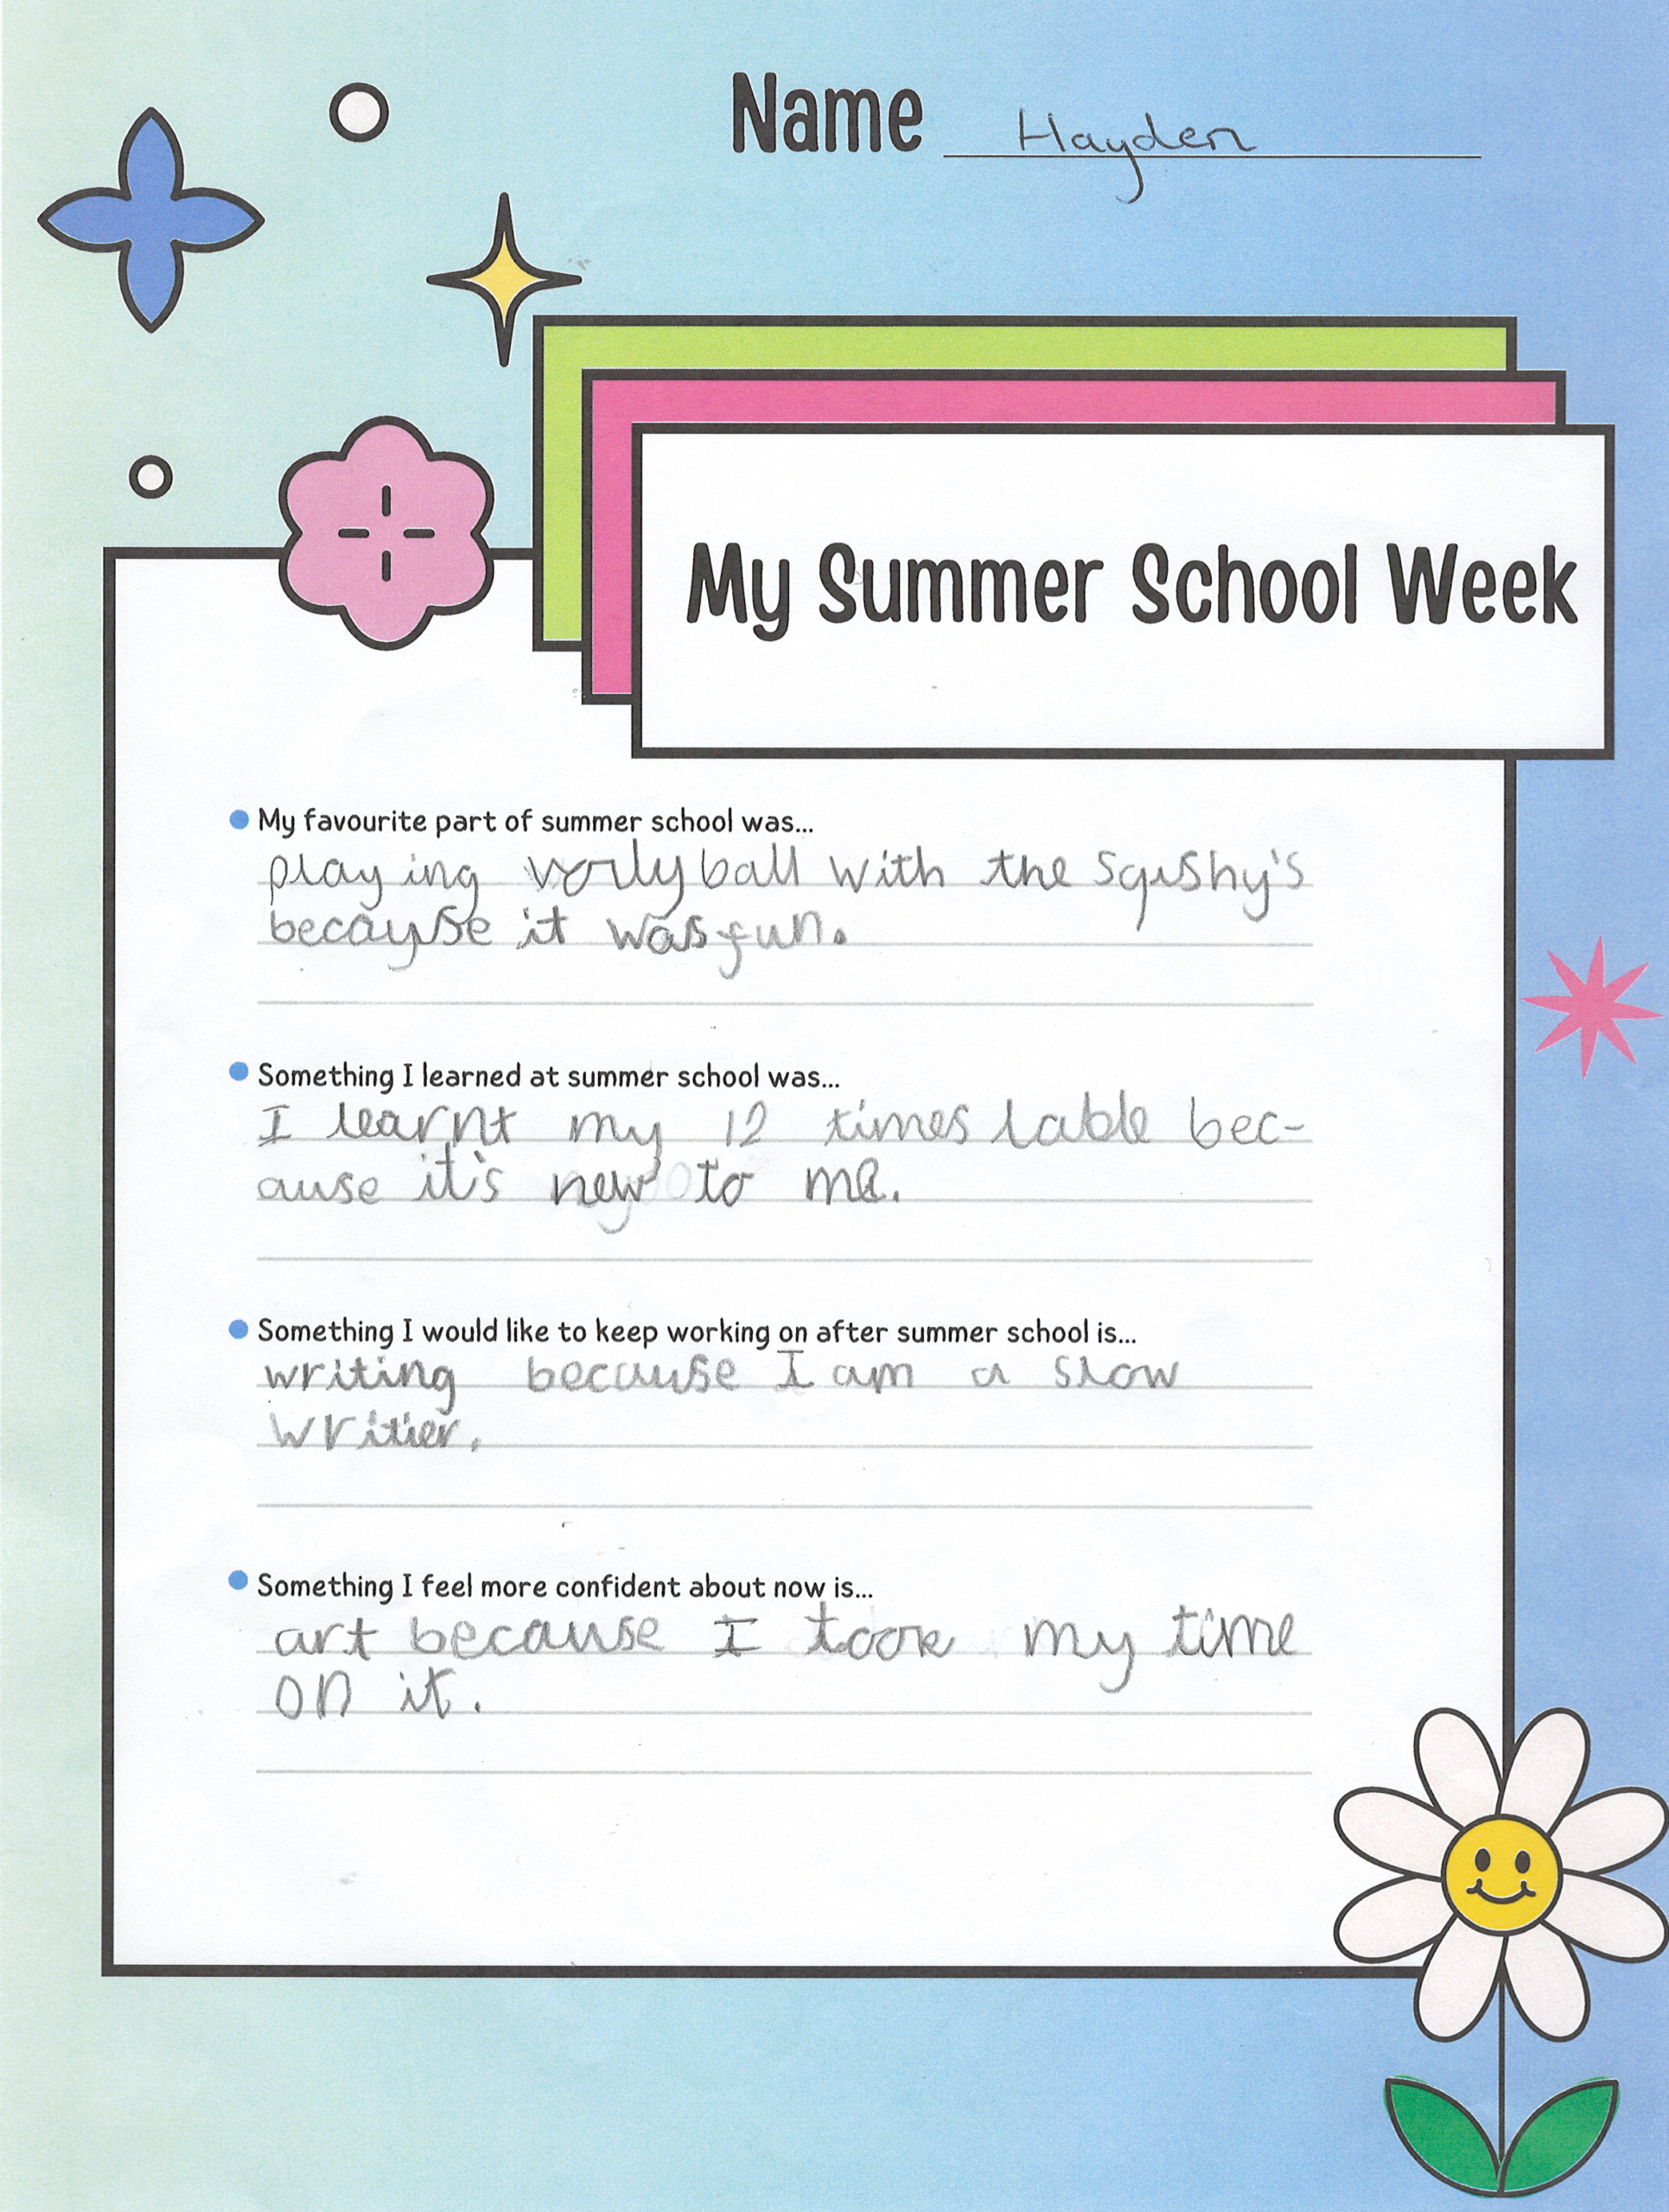 Name Hayden
My Summer School Week
My favourite part of summer school was...
playing vorlyball with the sqishy's
becayse it was fun.
Something I learned at summer school was...
I learnt my 12 times lable bec-
ause it's new to me.
Something I would like to keep working on after summer school is...
writing because I am a slow
writier.
Something I feel more confident about now is...
art because I took my time
on it.